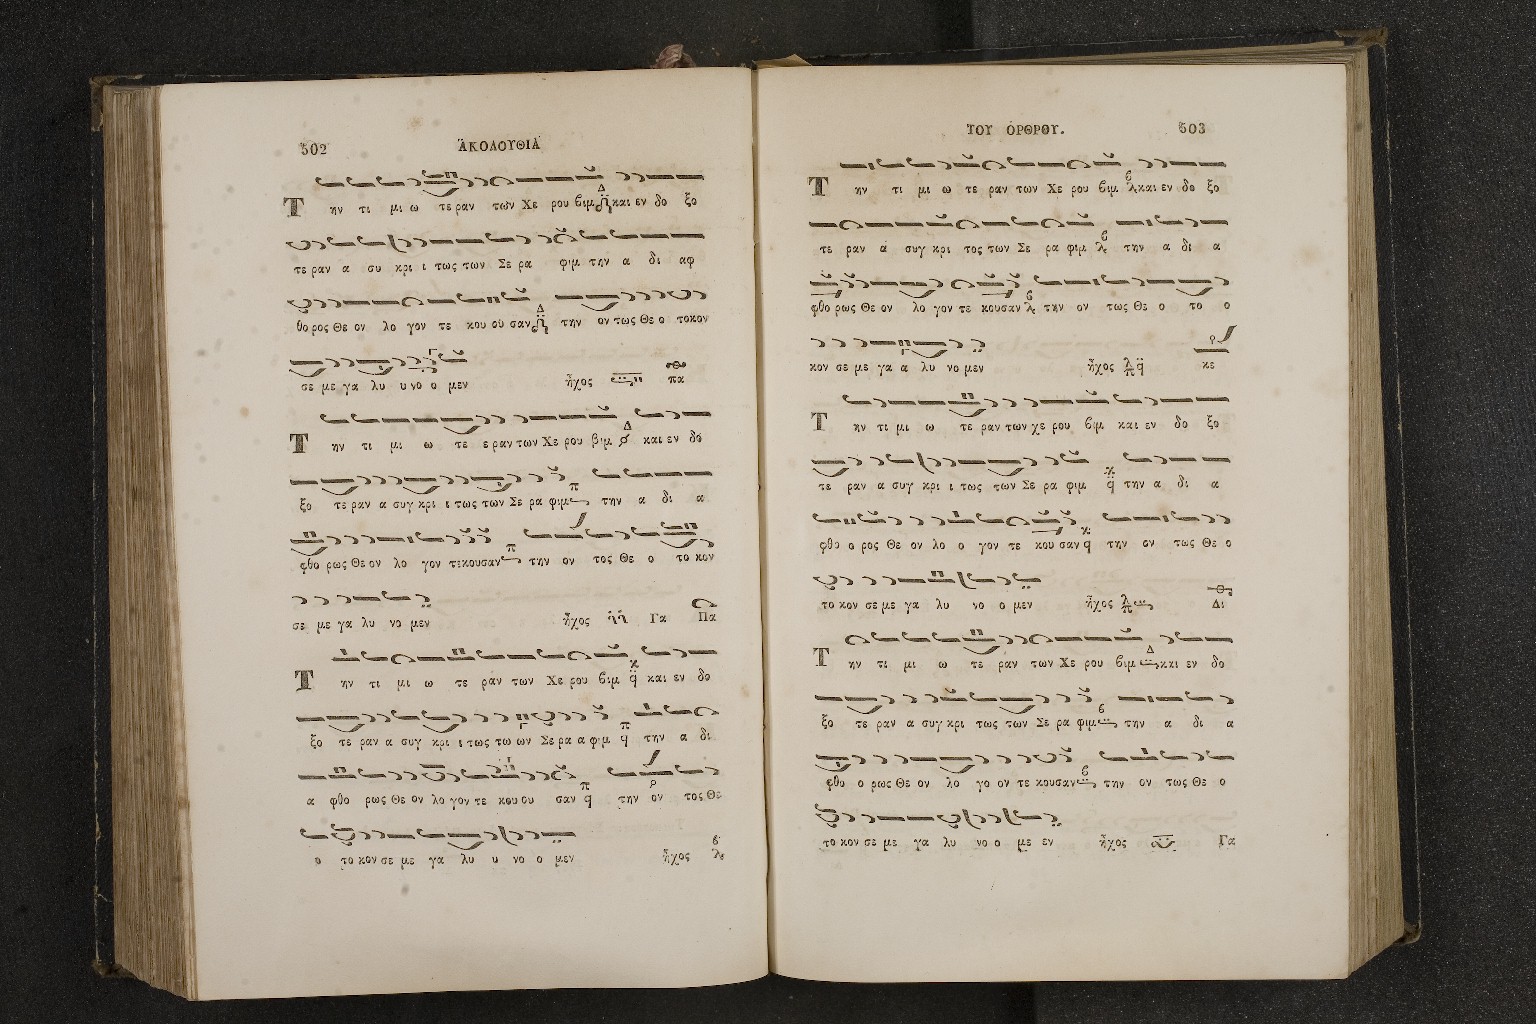 502 ἈΚΟΛΟΥΘΙΑ
Τ ην τι μι ω τε ραν των Χε ρου βιμ και εν δο ξο
τε ραν α συ κρι ι τως των Σε ρα φιμ την α δι αφ
θο ρος Θε ον λο γον τε κου ού σαν την ον τως Θε ο τοκον
σε με γα λυ υ νο ο μεν ἦχος πα
Τ ην τι μι ω τε ε ραν των Χε ρου βιμ και εν δο
ξο τε ραν α συγ κρι ι τως των Σε ρα φιμ την α δι α
φθο ρως Θε ον λο γον τεκουσαν την ον τος Θε ο το κον
σε με γα λυ νο μεν ἦχος Γα Πα
Τ ην τι μι ω τε ραν των Χε ρου βιμ και εν δο
ξο τε ραν α συγ κρι ι τως τω ων Σε ρα α φιμ την α δι
α φθο ρως Θε ον λο γον τε κου ου σαν την ον τος Θε
ο το κον σε με γα λυ υ νο ο μεν ἦχος
ΤΟΥ ΟΡΘΡΟΥ. 503
Τ ην τι μι ω τε ραν των Χε ρου βιμ και εν δο ξο
τε ραν α συγ κρι τος των Σε ρα φιμ την α δι α
φθο ρως Θε ον λο γον τε κουσαν την ον τως Θε ο το ο
κον σε με γα α λυ νο μεν ἦχος κε
Τ ην τι μι ω τε ραν των χε ρου βιμ και εν δο ξο
τε ραν α συγ κρι ι τως των Σε ρα φιμ την α δι α
φθο ο ρος Θε ον λο ο γον τε κου σαν την ον τως Θε ο
το κον σε με γα λυ νο ο μεν ἦχος Δι
Τ ην τι μι ω τε ραν των Χε ρου βιμ και εν δο
ξο τε ραν α συγ κρι τως των Σε ρα φιμ την α δι α
φθο ο ρως Θε ον λο γο ον τε κουσαν την ον τως Θε ο
το κον σε με γα λυ νο ο με εν ἦχος Γα